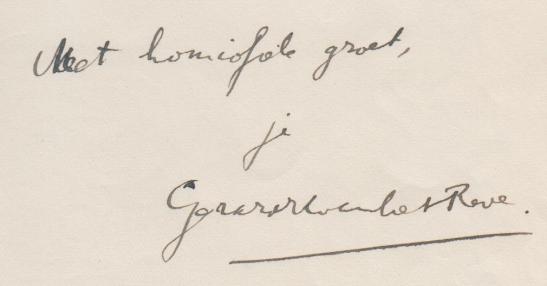 Met homiofole groet,
je
Gerard Kornelis v h Reve.